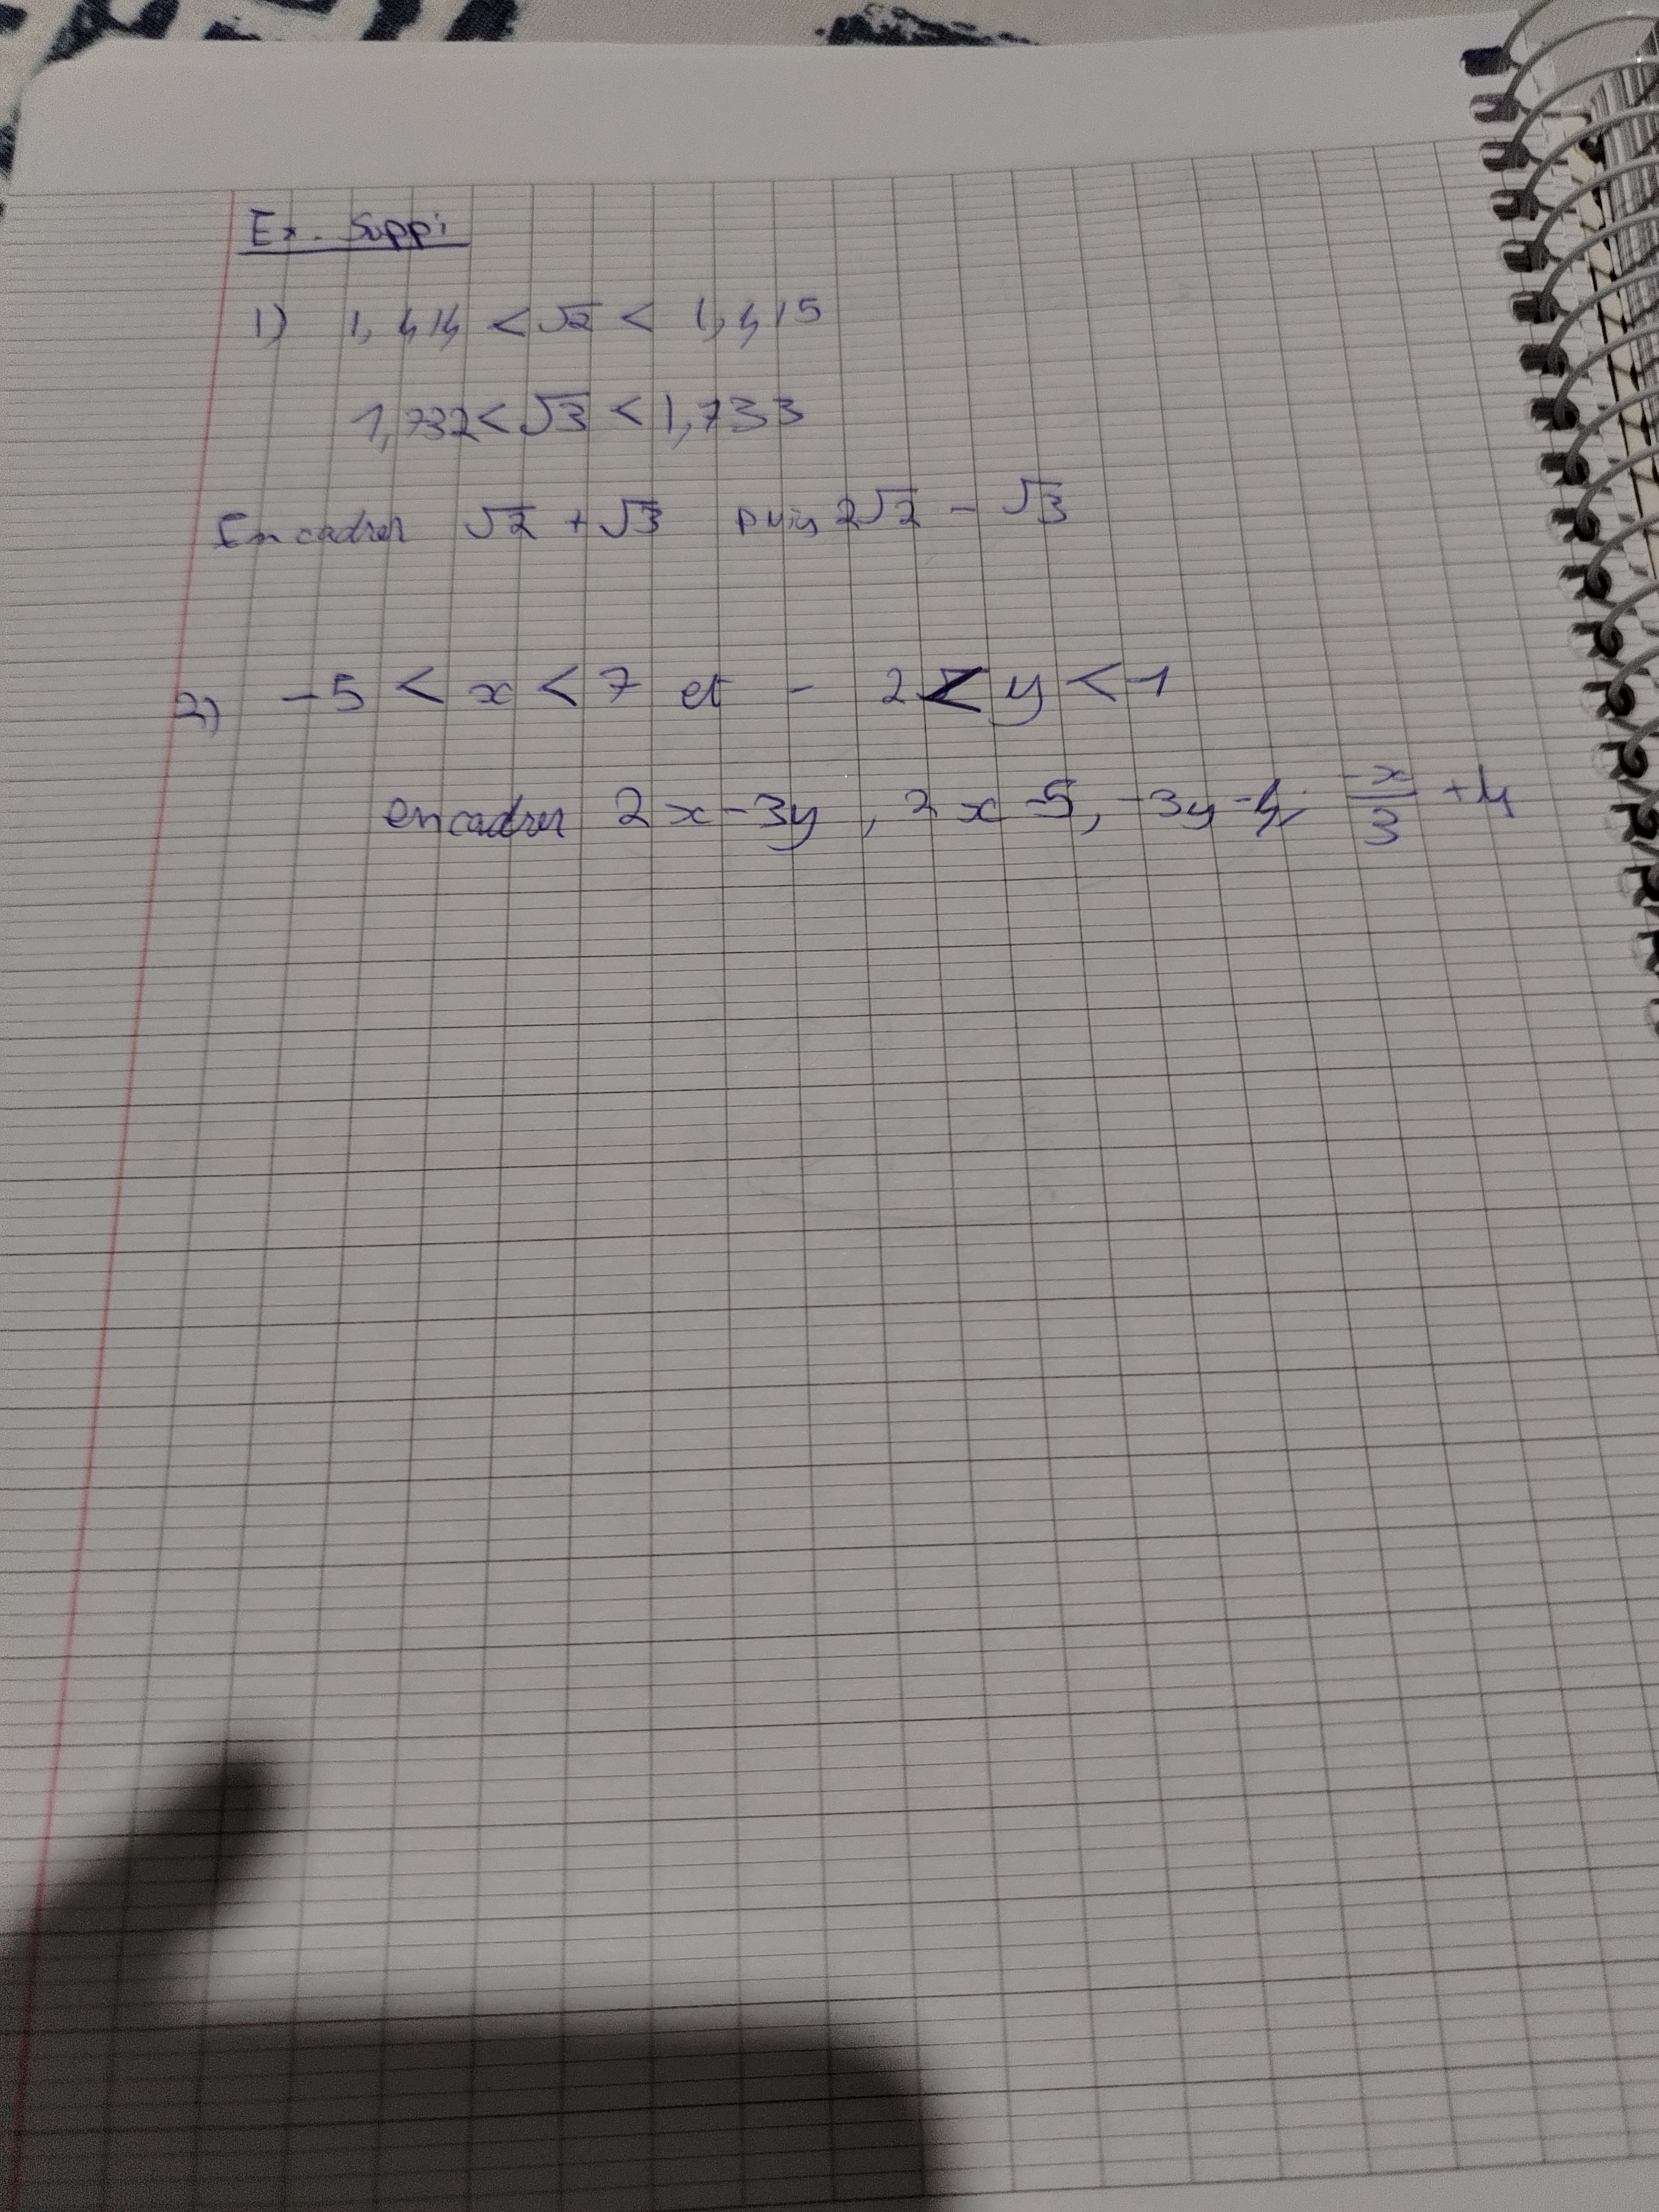 Ex. Suppi
1) 1,414 < √2 < 1,415
1,732 < √3 < 1,733
Encadrer √2 + √3 puis 2√2 - √3
2) -5 < x < 7 et -2 < y < -1
encadrer 2x-3y, 2x-5, -3y-4, -x/3 + 4